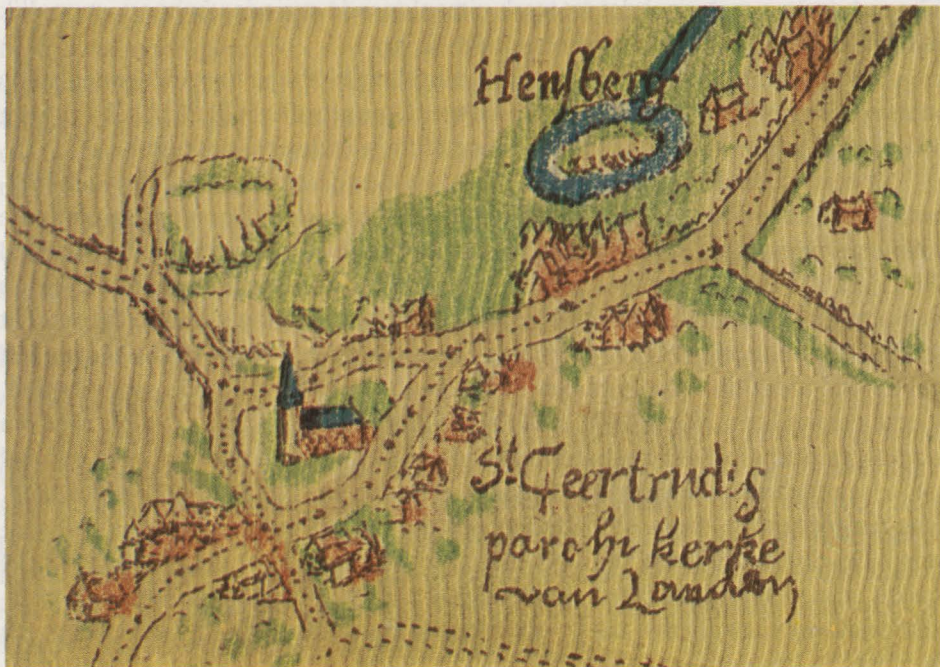 Hensberg
St Geertrudis
parohi kerke
van Landen